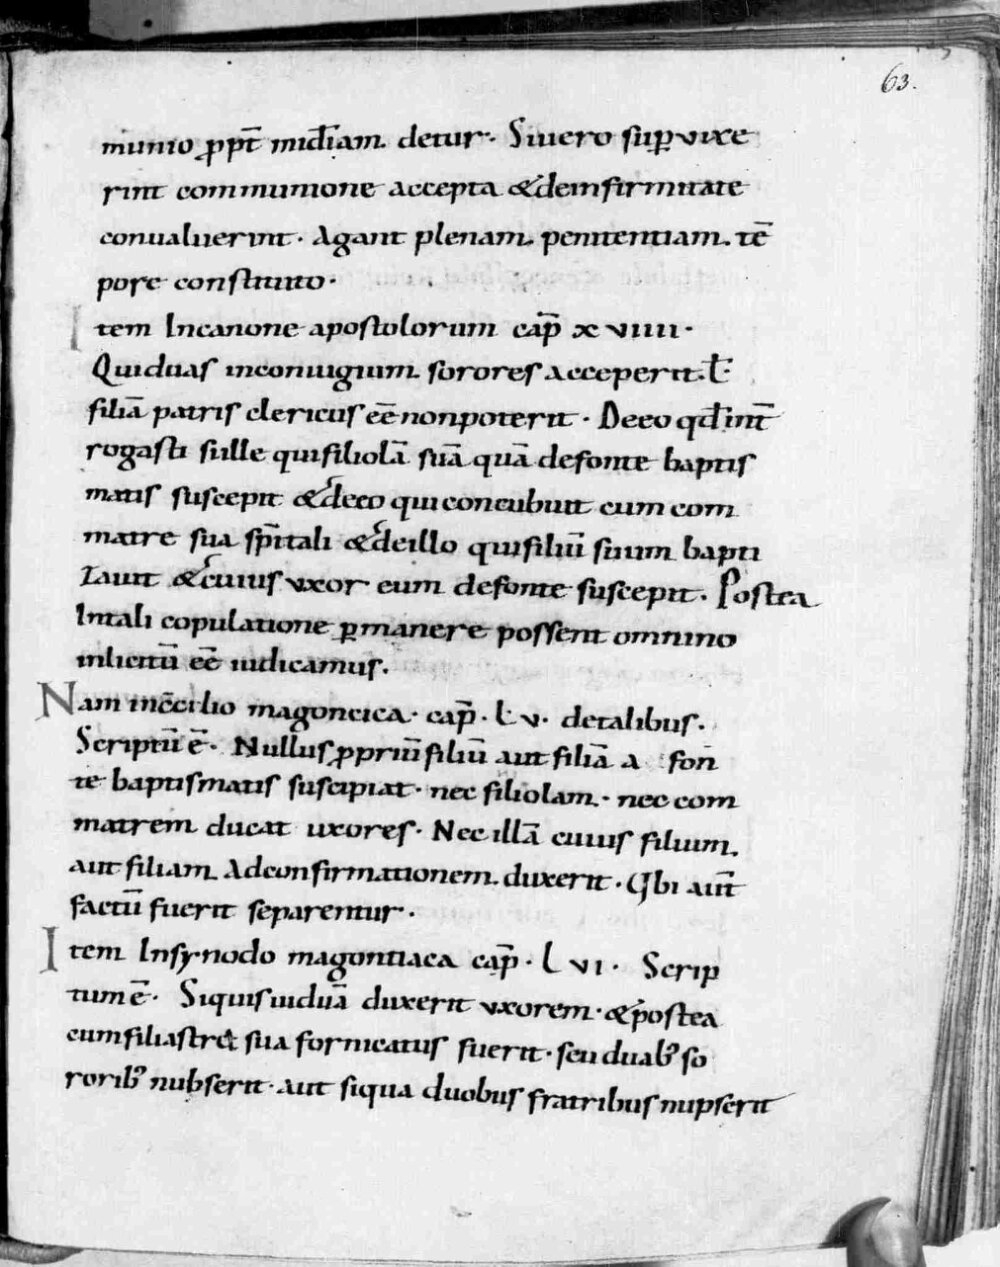 63.
munio ꝓpt̄ mid̄iam. detur. Siuero suꝑvixe
rint communione accepta &deinfirmitate
conualuerint. Agant plenam. penitentiam. tē
pore constituto.
Item Incanone apostolorum cap̄ xviiii.
Quiduas inconiugium. sorores acceperit. ł
filiā patris clericus eē nonpoterit. Deeo qd̄ int̄
rogasti sulle quifiliolā suā quā defonte baptis
matis suscepit &deeo qui concubuit cum com
matre sua sp̄itali &deillo quifiliū suum bapti
zauit &cuius vxor eum defonte suscepit. Postea
Intali copulatione ꝑmanere possent omnino
inlicitū eē iudicamus.
Nam inc̄cilio magoncica. cap̄. Lv. detalibus.
Scriptū ē. Nullus ꝓpriū filiū aut filiā a fon
te baptismatis suscipiat. nec filiolam. nec com
matrem ducat uxores. Nec illā cuius filium.
aut filiam Adconfirmationem. duxerit. Ubi aut̄
factū fuerit separentur.
Item Insynodo magontiaca cap̄. Lvi. Scrip
tum ē. Siquis uiduā duxerit vxorem. &postea
cumfiliastra sua fornicatus fuerit. seu duab᾽ so
rorib᾽ nubserit. aut siqua duobus fratribus nupserit